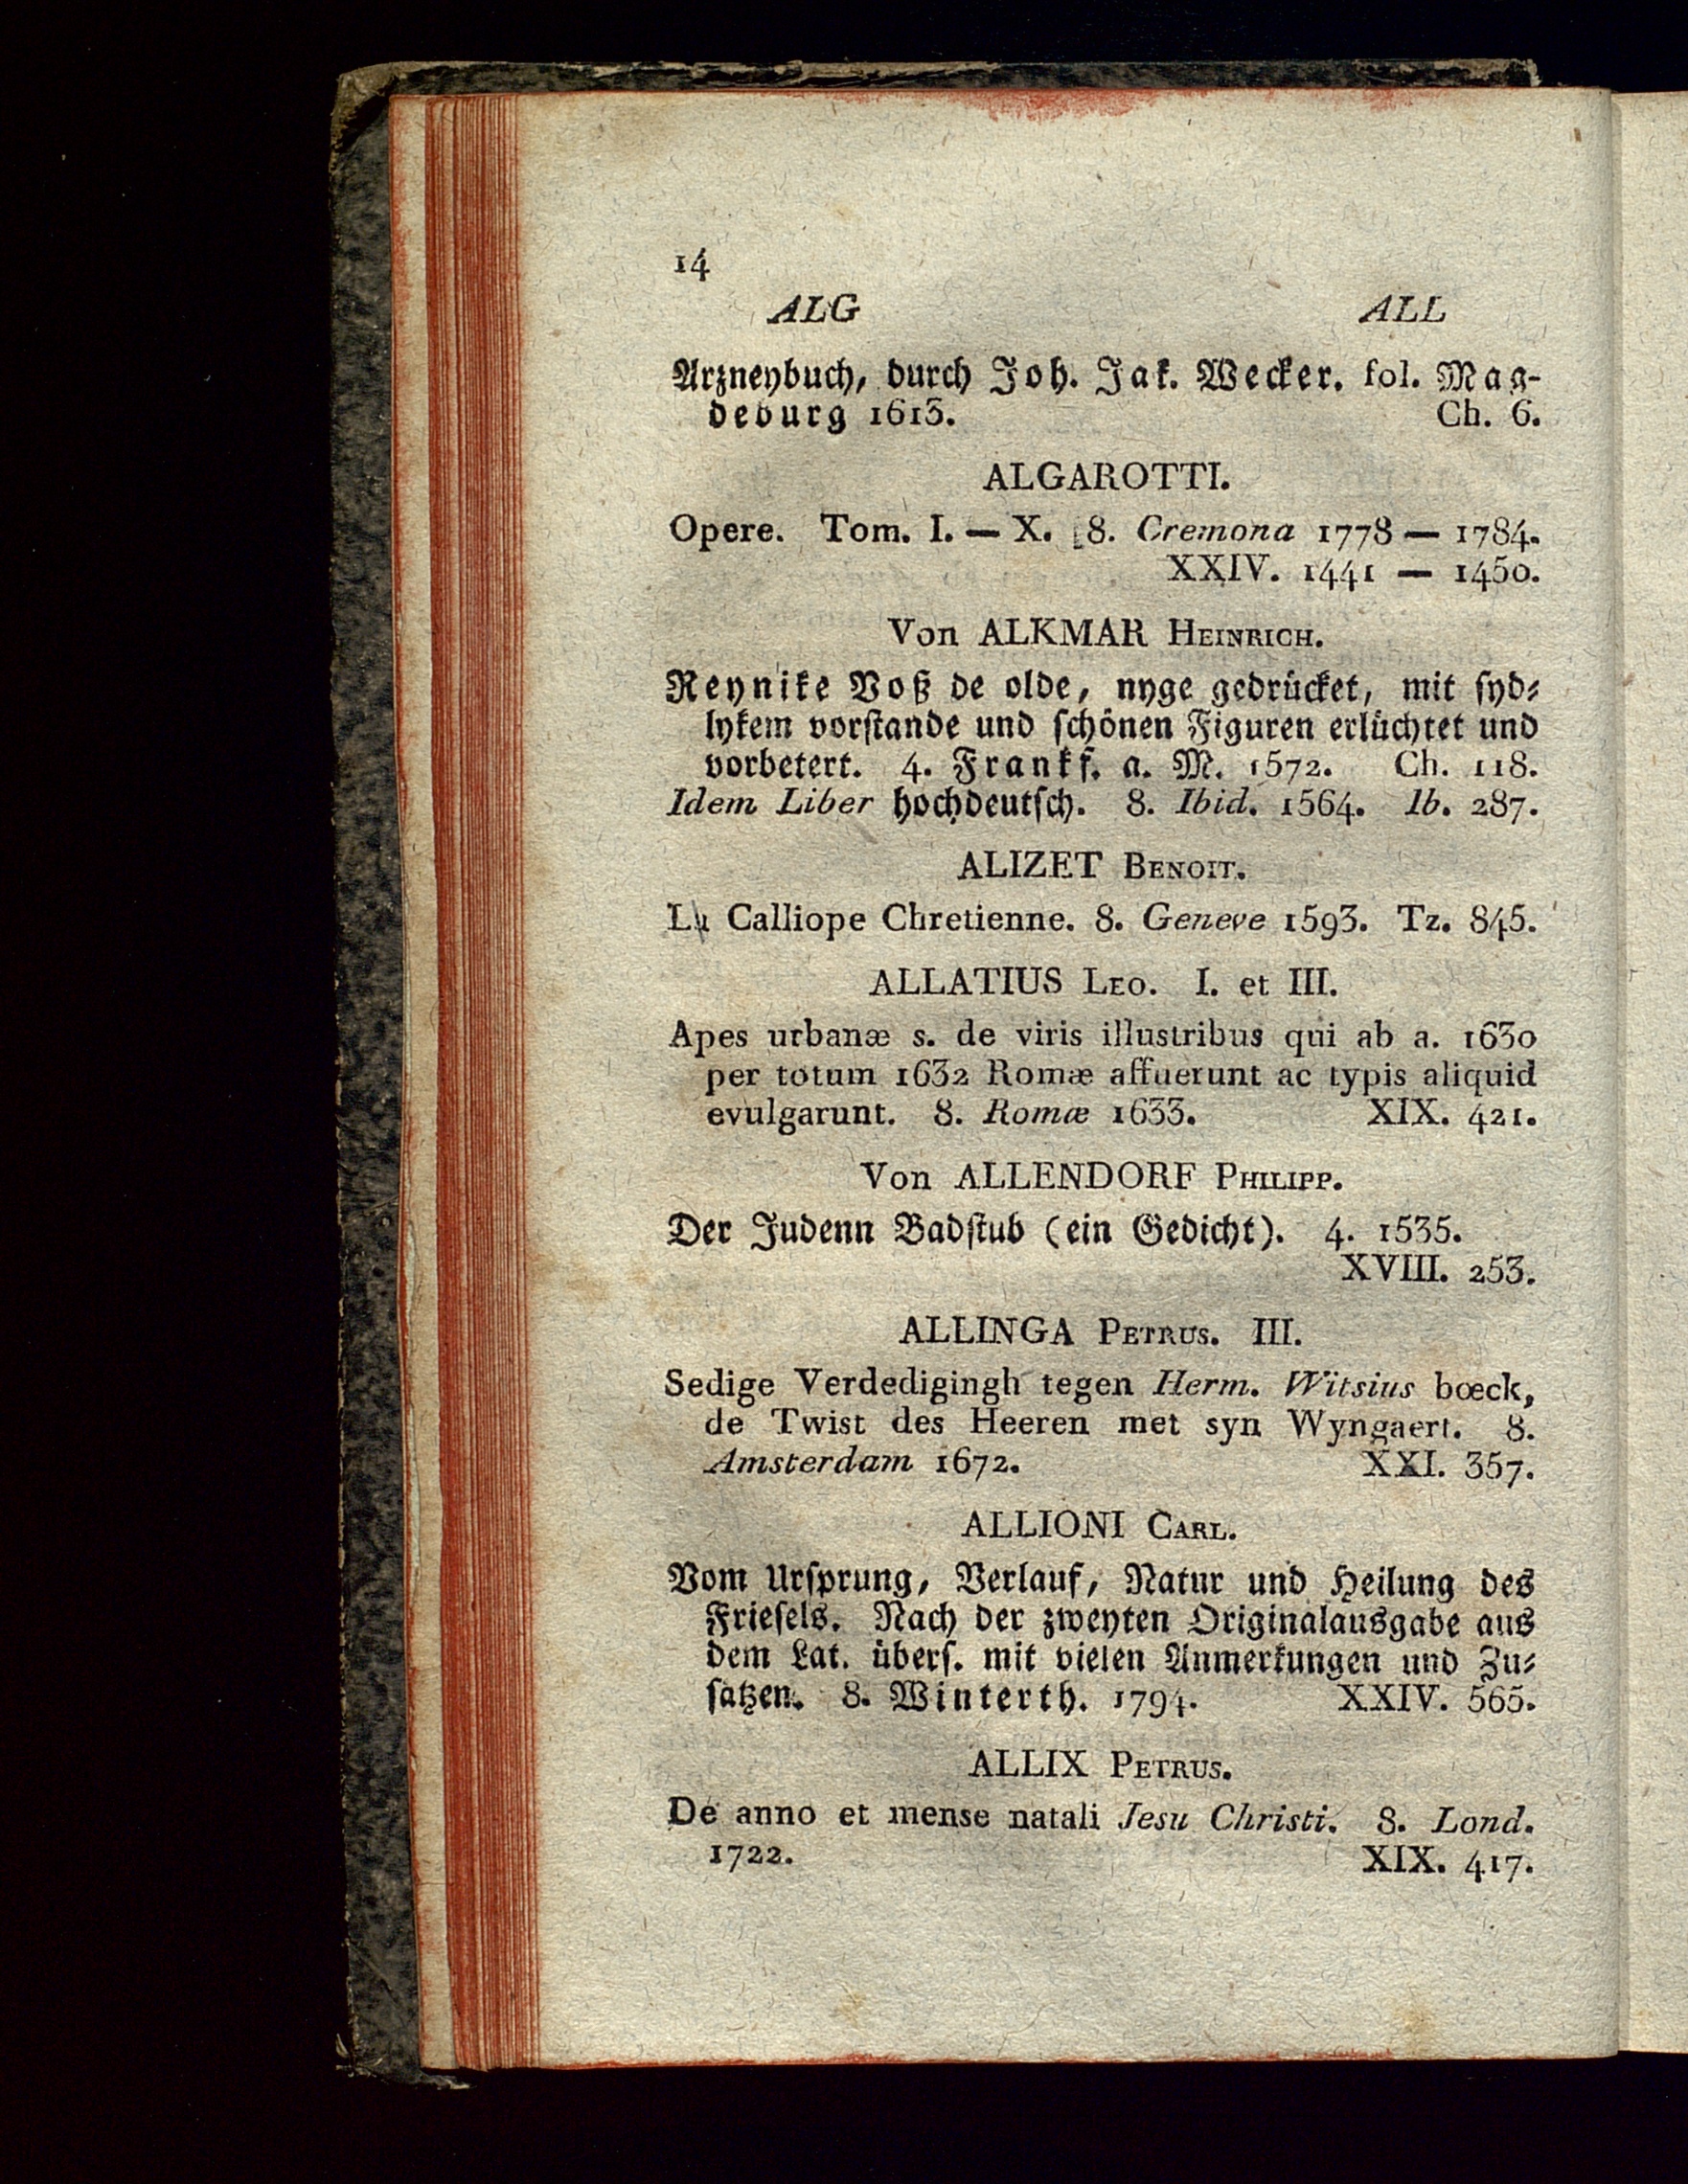 14
ALG ALL
Arzneybuch, durch Joh. Jak. Wecker. fol. Mag-
deburg 1613. Ch. 6.
ALGAROTTI.
Opere. Tom. I. — X. 8. Cremona 1778 — 1784.
XXIV. 1441 — 1450.
Von ALKMAR Heinrich.
Reynike Voß de olde, nyge gedrücket, mit syd-
lykem vorstande und schönen Figuren erlüchtet und
vorbetert. 4. Frankf. a. M. 1572. Ch. 118.
Idem Liber hochdeutsch. 8. Ibid. 1564. Ib. 287.
ALIZET Benoit.
La Calliope Chretienne. 8. Geneve 1593. Tz. 845.
ALLATIUS Leo. I. et III.
Apes urbanæ s. de viris illustribus qui ab a. 1630
per totum 1632 Romæ affuerunt ac typis aliquid
evulgarunt. 8. Romæ 1633. XIX. 421.
Von ALLENDORF Philipp.
Der Judenn Badstub (ein Gedicht). 4. 1535.
XVIII. 253.
ALLINGA Petrus. III.
Sedige Verdedigingh tegen Herm. Witsius bœck,
de Twist des Heeren met syn Wyngaert. 8.
Amsterdam 1672. XXI. 357.
ALLIONI Carl.
Vom Ursprung, Verlauf, Natur und Heilung des
Friesels. Nach der zweyten Originalausgabe aus
dem Lat. übers. mit vielen Anmerkungen und Zu-
sätzen. 8. Winterth. 1794. XXIV. 565.
ALLIX Petrus.
De anno et mense natali Jesu Christi. 8. Lond.
1722. XIX. 417.